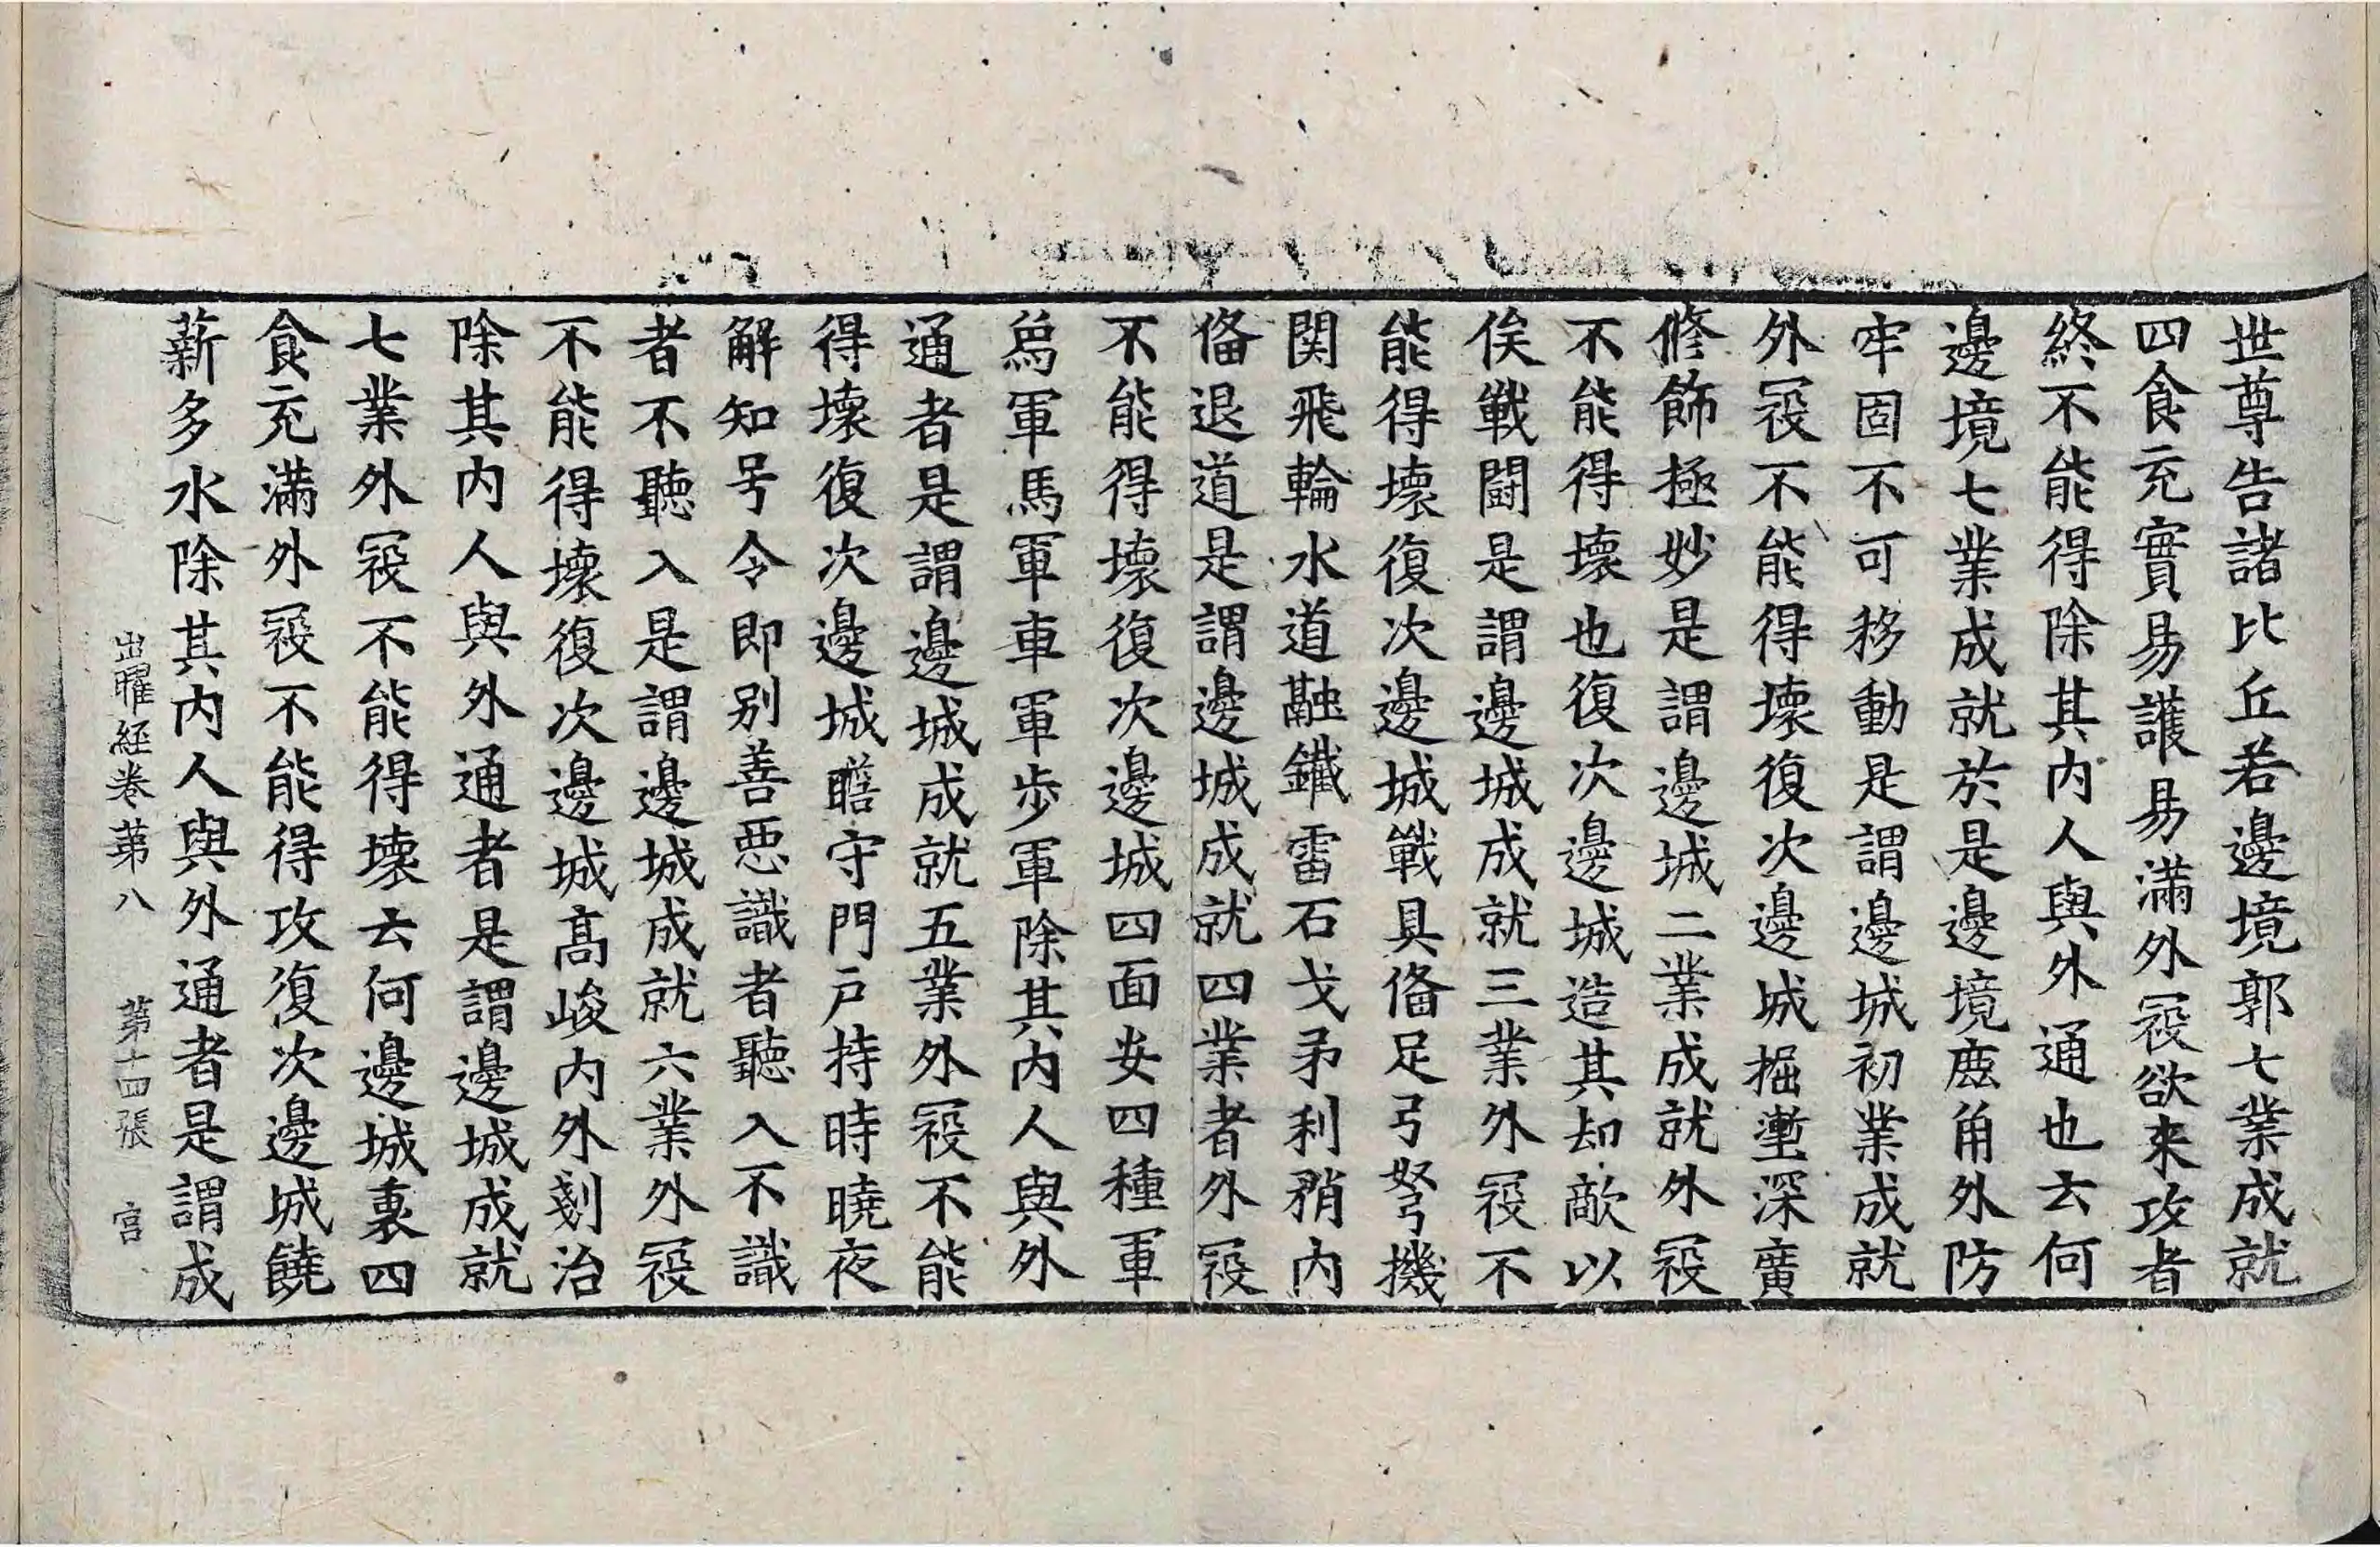 世尊告諸比丘若邊境郭七業成就
四食充實易護易滿外冦欲來攻者
終不能得除其內人與外通也云何
邊境七業成就於是邊境鹿角外防
牢固不可移動是謂邊城初業成就
外冦不能得壞復次邊城掘壍深廣
修飾極妙是謂邊城二業成就外冦
不能得壞也復次邊城造其却敵以
俟戰鬪是謂邊城成就三業外冦不
能得壞復次邊城戰具俻足弓弩機
関飛輪水道融鐵雷石戈矛利矟內
俻退道是謂邊城成就四業者外冦
不能得壞復次邊城四面安四種軍
爲軍馬軍車軍步軍除其內人與外
通者是謂邊城成就五業外冦不能
得壞復次邊城瞻守門戶持時曉夜
解知号令即別善惡識者聽入不識
者不聽入是謂邊城成就六業外冦
不能得壞復次邊城髙峻內外剗治
除其內人與外通者是謂邊城成就
七業外冦不能得壞云何邊城裏四
食充滿外冦不能得攻復次邊城饒
薪多水除其內人與外通者是謂成
出曜經卷第八 第十四張 宮